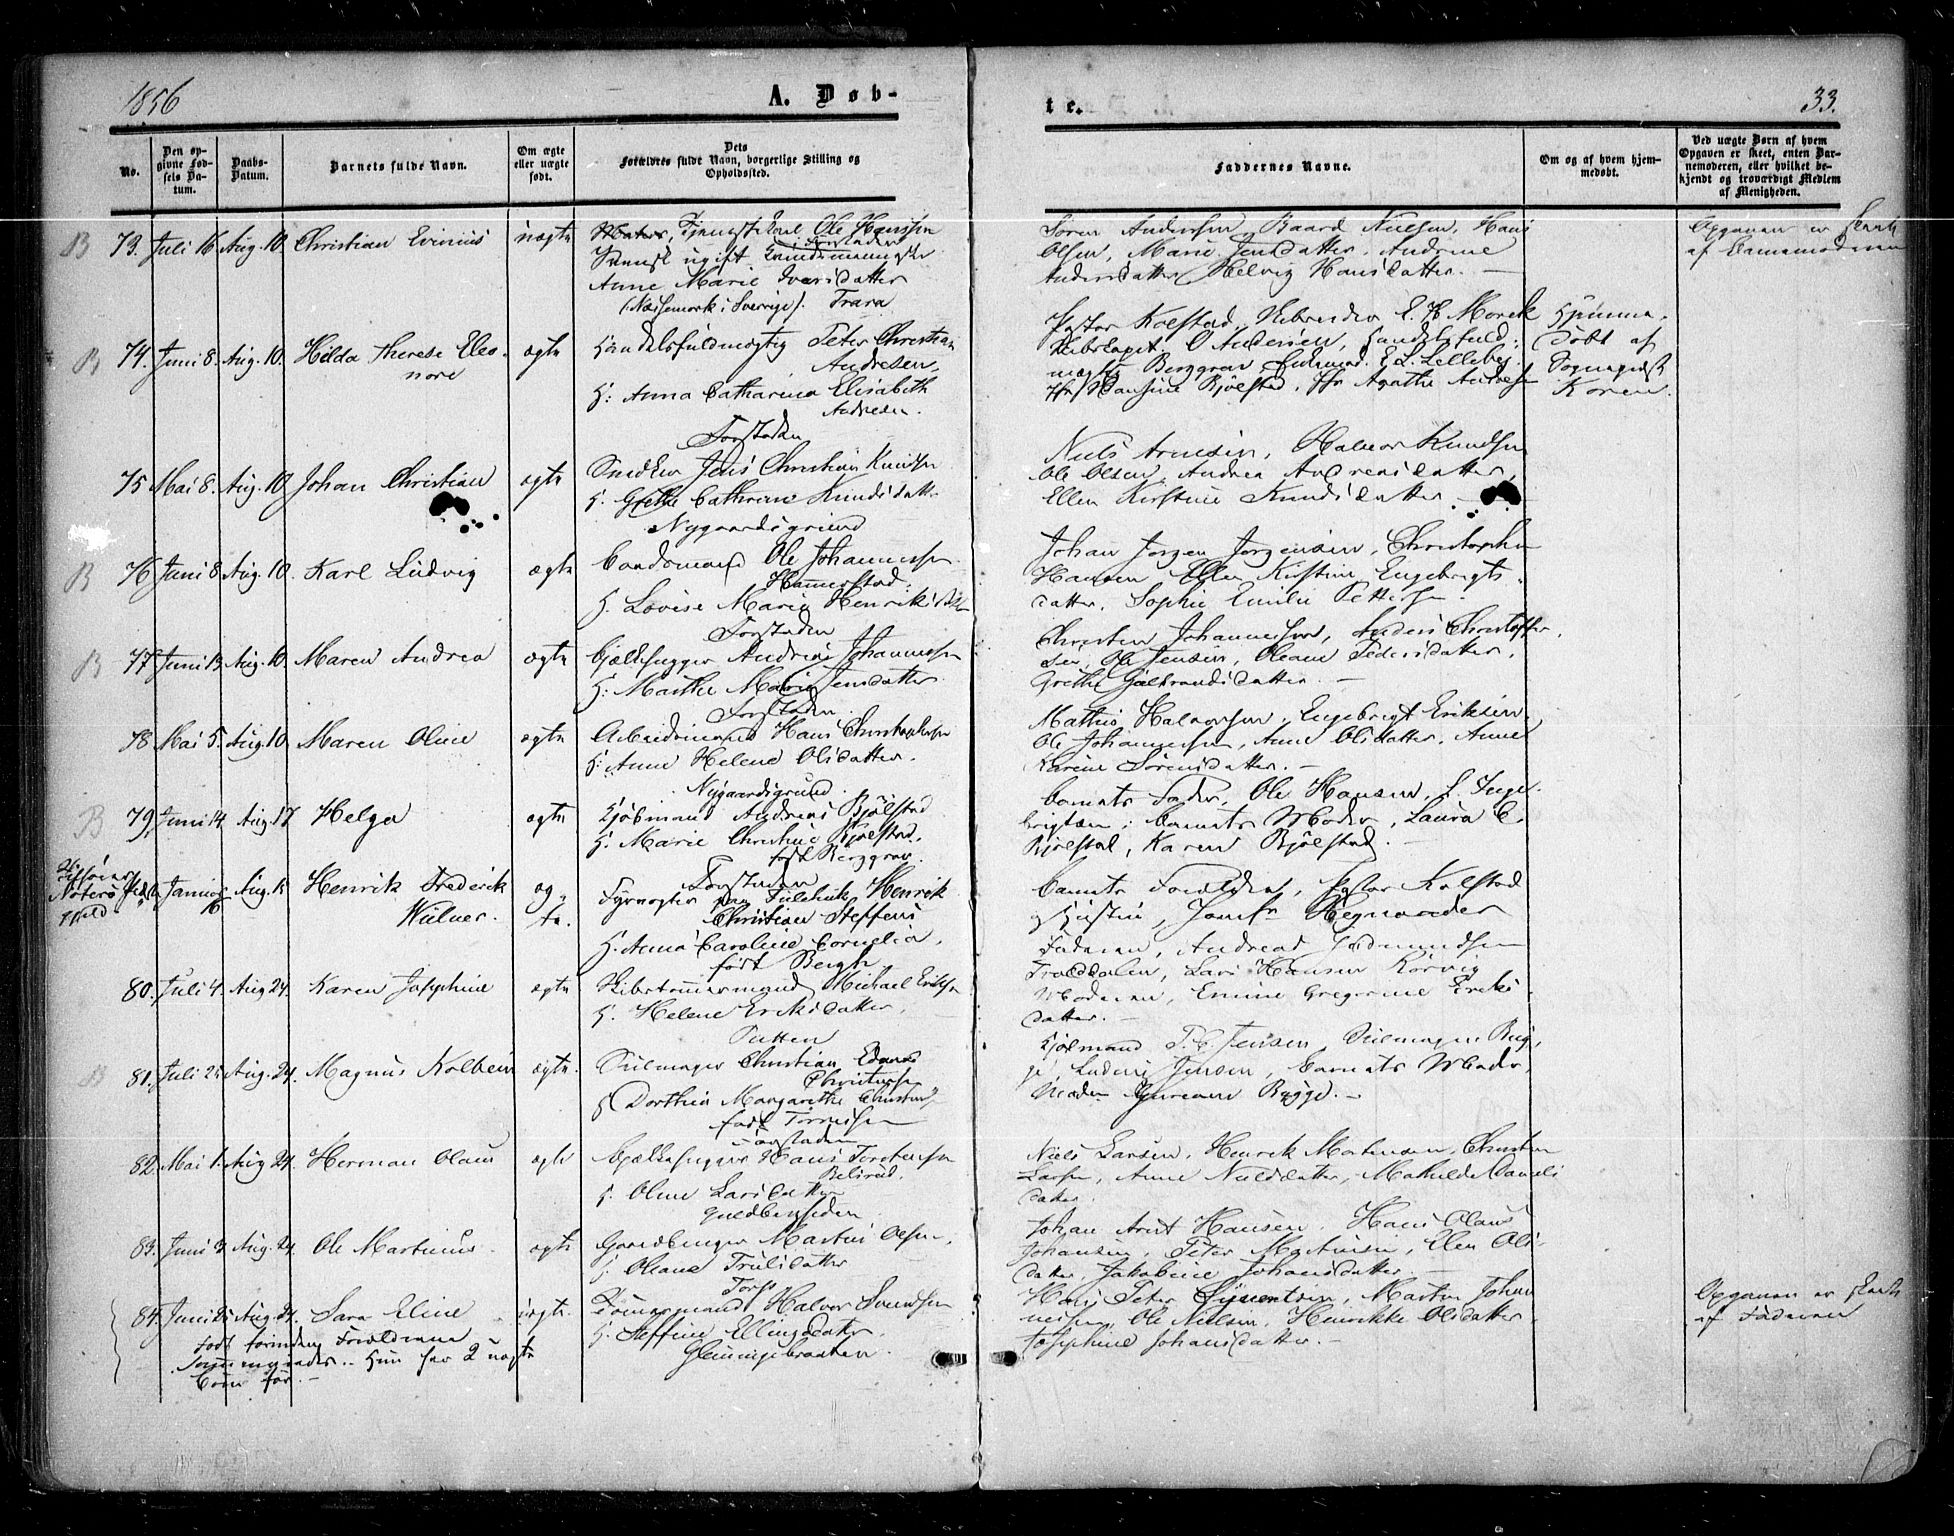 1856
A. Døb-
te.
33.
No.
Den opgivne Fødsels Datum.
Daabs-Datum.
Barnets fulde Navn.
Om ægte eller uægte født.
Dets Forældres fulde Navn, borgerlige Stilling og Opholdssted.
Faddernes Navne.
Om og af hvem hjemmedøbt.
Ved uægte Børn af hvem Opgaven er skeet, enten Barnemoderen, eller hvilket bekjendt og troværdigt Medlem af Menigheden.
B 73. Juli 16 Aug. 10. Christian Evinius uægte
Ole Hanssen
Svensk ugift
Anne Marie Ivarsdatter
(Næssemark i Sverrige). Trara
Søren Andersen, Baard Nielsen, Hans
Olsen, Marie Jensdatter, Andrine
Andersdatter, Helvig Hansdatter.
Opgaven er skeet
af Barnemoderen
B 74. Juni 8. Aug. 10. Hilda Therese Eleo-
nore ægte
Handelsfuldmægtig Peter Christian
Andresen,
H: Anna Catharina Elisabeth
Andresen.
Forstaden
Kolstad, Skibsreder
O. Andersen, Handelsfuld-
mægtig Berggrav
Hansine Bjølstad, Agathe Andresen
Hjemme-
døbt af
Sognepræst
Koren.
75 Mai 8. Aug. 10 Johan Christian ægte
Snedker Jens Christian Knudsen
H. Grethe Cathrine Knudsdatter
Nygaardsgrund
Niels Arnesen, Halvor Knudsen
Ole Olsen, Andrea Andreasdatter,
Ellen Kirstine Knudsdatter.
B 76 Juni 8. Aug. 10. Karl Ludvig ægte
Ole Johannessen
Hammerstad,
H. Lovise Marie Henriksdatter
Forstaden
Johan Jørgen Jørgensen, Christopher
Hansen Ellen Kirstine Engebrigts-
datter, Sophie Emilie Pettersen.
B 77 Juni 13. Aug. 10. Maren Andrea ægte
Bjælkehugger Andreas Johannessen
H: Marthe Marie Jensdatter.
Forstaden.
Christen Johannessen, Anders Christoffer-
sen, Ole Jensen, Oleane Pedersdatter,
Grethe Gulbrandsdatter.
78 Mai 5. Aug. 10 Maren Oline ægte
Arbeidsmand Hans Christophersen
H: Anne Helene Olsdatter.
Nygaardsgrund.
Mathis Halvorsen, Engebrigt Eriksen,
Ole Johannessen, Anne Olsdatter, Anne
Karine Sørensdatter.
B 79 Juni 14 Aug. 17 Helga ægte
Kjøbmand Andreas Bjølstad
H. Marie Christine Bjølstad,
født Berggrav.
Forstaden
Barnets Fader, Ole Hansen,
Barnets Moder, Laura C.
Bjølstad, Karen Bjølstad.
Januar
16 Aug. 15 Henrik Frederik
Wülner. æg-
te.
Fyrvogter paa Henrik
Christian Steffens
H. Anna Caroline Cornelia,
født Bergh.
Barnets Forældre, Kolstad
og Hustru,
80. Juli 4. Aug 24. Karen Josephine ægte
Skibstømmermand Michael Eriksen
H. Helene Eriksdatter,
Faderen, Andreas Gudmundsen
Lars Hansen Kørvig
Moderen, Emine Gregorine Eriks-
datter.
81. Juli 21 Aug. 24. Magnus Kolbein ægte.
Seilmager Christian Edvard
Christensen
H Dorthea Margarethe
født Tønnessen
Forstaden
Kjøbmand P. C. Jensen, Seilmager Byg-
ge, Jensen, Barnets Moder,
Bygge.
82. Mai 1. Aug 24. Herman Olaus ægte
Bjælkehugger Hans Torstensen
H. Oline Larsdatter
Niels Larsen, Henrik Mortensen, Christen
Larsen, Anne Nilsdatter, Mathilde Daniels-
datter.
83. Juni 3 Aug. 24. Ole Martinius. ægte
Gaardbruger Martus Olsen,
H. Oleane Trulsdatter
Torp
Johan Arnt Hansen. Hans Olaus
Johansen, Peter Mathisen, Elen Ols-
datter, Jakobine Johansdatter.
84. Juni 25 Aug. 24. Sara Eline uægte.
født forinden Forældrene
Hun har 2 uægte
Børn før.
Tømmermand Halvor Svendsen
H. Steffine Ellingsdatter.
Glemmingebraaten.
Hans Peter Syvertsen, Martin Johan-
nessen, Ole Nielsen, Henrikke Olsdatter,
Josephine Johansdatter.
Opgaven er skeet
af Faderen